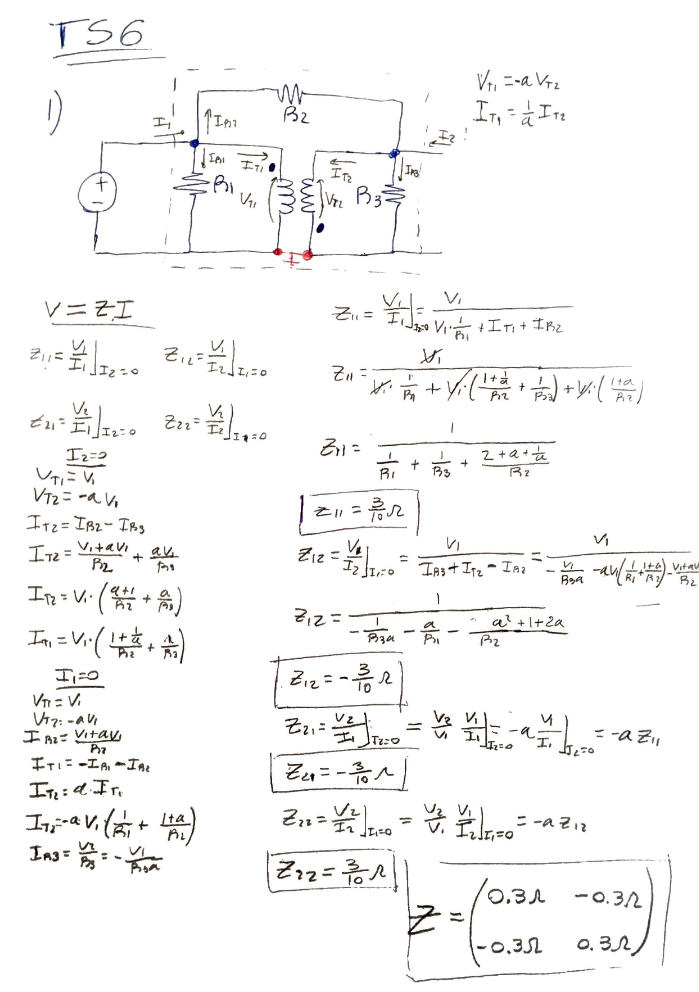 TS6
1)
V_T1 = -a V_T2
I_T1 = 1/a I_T2
I_1
I_R2
R_2
I_2
I_R1
I_T1
I_T2
I_R3
R_1
V_T1
V_T2
R_3
+
-
V = Z I
Z_11 = V_1/I_1 ]_I2=0
Z_12 = V_1/I_2 ]_I1=0
Z_21 = V_2/I_1 ]_I2=0
Z_22 = V_2/I_2 ]_I1=0
I_2=0
V_T1 = V_1
V_T2 = -a V_1
I_T2 = I_R2 - I_R3
I_T2 = (V_1+aV_1)/R_2 + aV_1/R_3
I_T2 = V_1·((a+1)/R_2 + a/R_3)
I_T1 = V_1·((1+1/a)/R_2 + 1/R_3)
I_1=0
V_T1 = V_1
V_T2 = -aV_1
I_R2 = (V_1+aV_1)/R_2
I_T1 = -I_R1 - I_R2
I_T2 = a·I_T1
I_T2 = -aV_1(1/R_1 + (1+a)/R_2)
I_R3 = V_2/R_3 = -V_1/(R_3a)
Z_11 = V_1/I_1 ]_I2=0 = V_1/(V_1·1/R_1 + I_T1 + I_R2)
Z_11 = V_1/(V_1·1/R_1 + V_1·((1+1/a)/R_2 + 1/R_3) + V_1·((1+a)/R_2))
Z_11 = 1/(1/R_1 + 1/R_3 + (2+a+1/a)/R_2)
Z_11 = 3/10 Ω
Z_12 = V_1/I_2 ]_I1=0 = V_1/(I_R3 + I_T2 - I_R2) = V_1/(-V_1/(R_3a) - aV_1(1/R_1 + (1+a)/R_2) - (V_1+aV_1)/R_2)
Z_12 = 1/(-1/(R_3a) - a/R_1 - (a²+1+2a)/R_2)
Z_12 = -3/10 Ω
Z_21 = V_2/I_1 ]_I2=0 = V_2/V_1 V_1/I_1 ]_I2=0 = -a V_1/I_1 ]_I2=0 = -a Z_11
Z_21 = -3/10 Ω
Z_22 = V_2/I_2 ]_I1=0 = V_2/V_1 V_1/I_2 ]_I1=0 = -a Z_12
Z_22 = 3/10 Ω
Z = (0.3Ω -0.3Ω
-0.3Ω 0.3Ω)